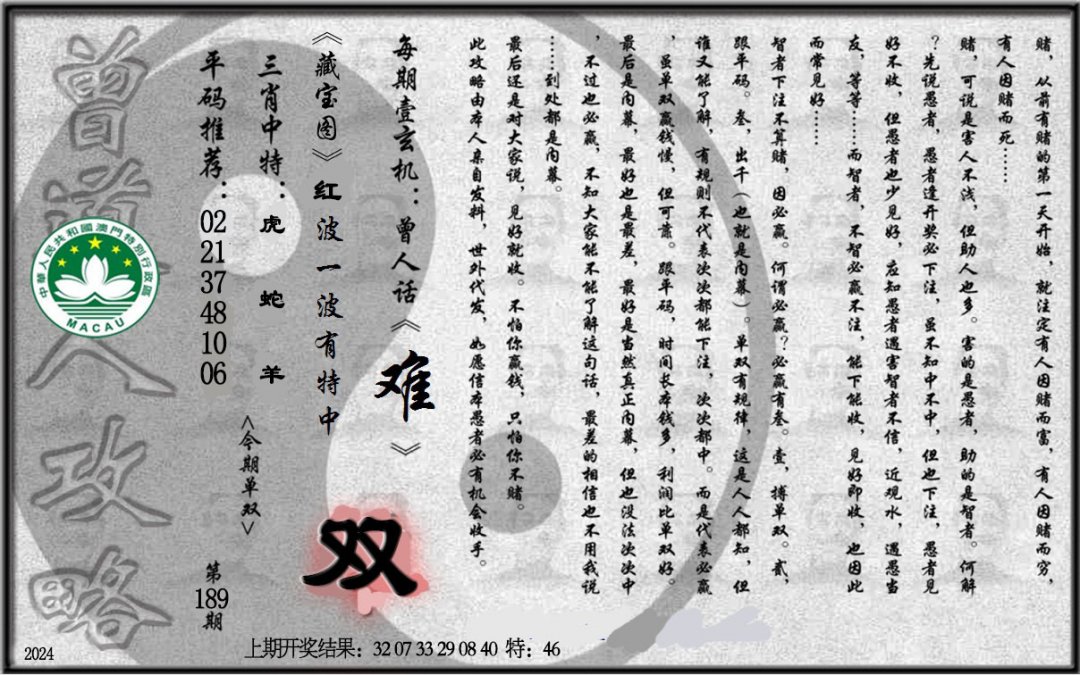 赌，从前有赌的第一天开始，就注定有人因赌而富，有人因赌而穷，
有人因赌而死……
赌，可说是害人不浅，但助人也多。害的是愚者，助的是智者。何解
？先说愚者，愚者逢开奖必下注，虽不知中不中，但也下注，愚者见
好不收，但愚者也少见好，应知愚者遇害智者不信，近观水，遇愚当
友，等等……而智者，不智必赢不注，能下能收，见好即收，也因此
而常见好……
智者下注不算赌，因必赢。何谓必赢？必赢有叁。壹，搏单双。贰，
跟平码。叁，出千（也就是内幕）。单双有规律，这是人人都知，但
谁又能了解，有规则不代表次次都能下注，次次都中。而是代表必赢
，虽单双赢钱慢，但可靠。跟平码，时间长本钱多，利润比单双好。
最后是内幕，最好也是最差，最好是当然真正内幕，但也没法次次中
，不过也必赢，不知大家能不能了解这句话，最差的相信也不用我说
……到处都是内幕。
最后还是对大家说，见好就收。不怕你赢钱，只怕你不赌。
此攻略由本人亲自发料，世外代发，如愿信本愚者必有机会收手。
每期壹玄机：曾人话《难》
《藏宝图》红波一波有特中
双
三肖中特：虎 蛇 羊
<今期单双>
平码推荐：02 21 37 48 10 06
第189期
曾道人攻略
中華人民共和國澳門特別行政區
MACAU
2024
上期开奖结果：32 07 33 29 08 40 特：46